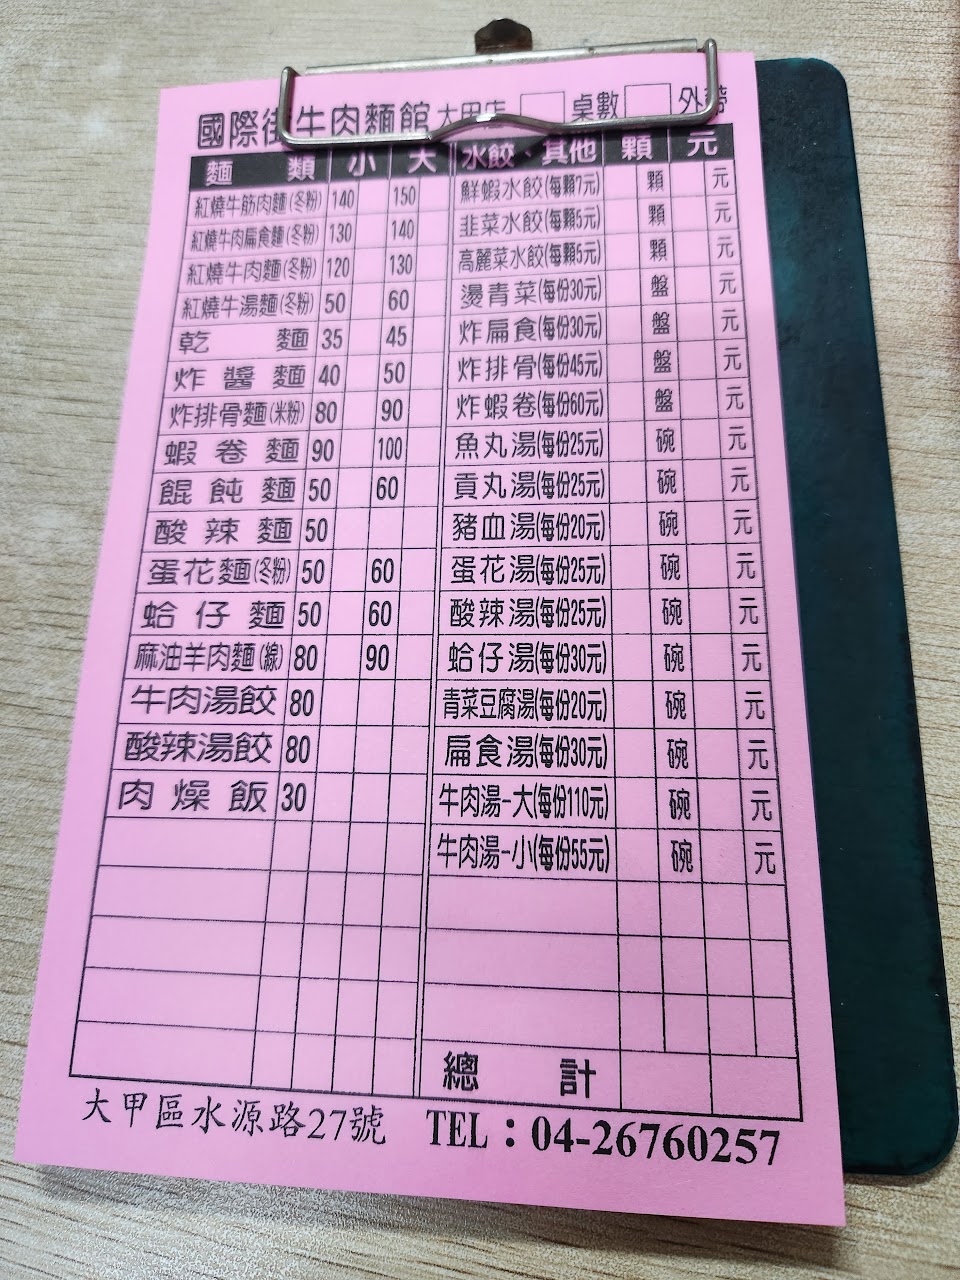 國際街牛肉麵館 大甲店 桌數 外帶
麵類 小 大 水餃、其他 顆 元
紅燒牛筋肉麵(冬粉) 140 150 鮮蝦水餃(每顆7元) 顆 元
紅燒牛肉扁食麵(冬粉) 130 140 韭菜水餃(每顆5元) 顆 元
紅燒牛肉麵(冬粉) 120 130 高麗菜水餃(每顆5元) 顆 元
紅燒牛湯麵(冬粉) 50 60 燙青菜(每份30元) 盤 元
乾麵 35 45 炸扁食(每份30元) 盤 元
炸醬麵 40 50 炸排骨(每份45元) 盤 元
炸排骨麵(米粉) 80 90 炸蝦卷(每份60元) 盤 元
蝦卷麵 90 100 魚丸湯(每份25元) 碗 元
餛飩麵 50 60 貢丸湯(每份25元) 碗 元
酸辣麵 50 豬血湯(每份20元) 碗 元
蛋花麵(冬粉) 50 60 蛋花湯(每份25元) 碗 元
蛤仔麵 50 60 酸辣湯(每份25元) 碗 元
麻油羊肉麵(線) 80 90 蛤仔湯(每份30元) 碗 元
牛肉湯餃 80 青菜豆腐湯(每份20元) 碗 元
酸辣湯餃 80 扁食湯(每份30元) 碗 元
肉燥飯 30 牛肉湯-大(每份110元) 碗 元
牛肉湯-小(每份55元) 碗 元
總計
大甲區水源路27號 TEL：04-26760257